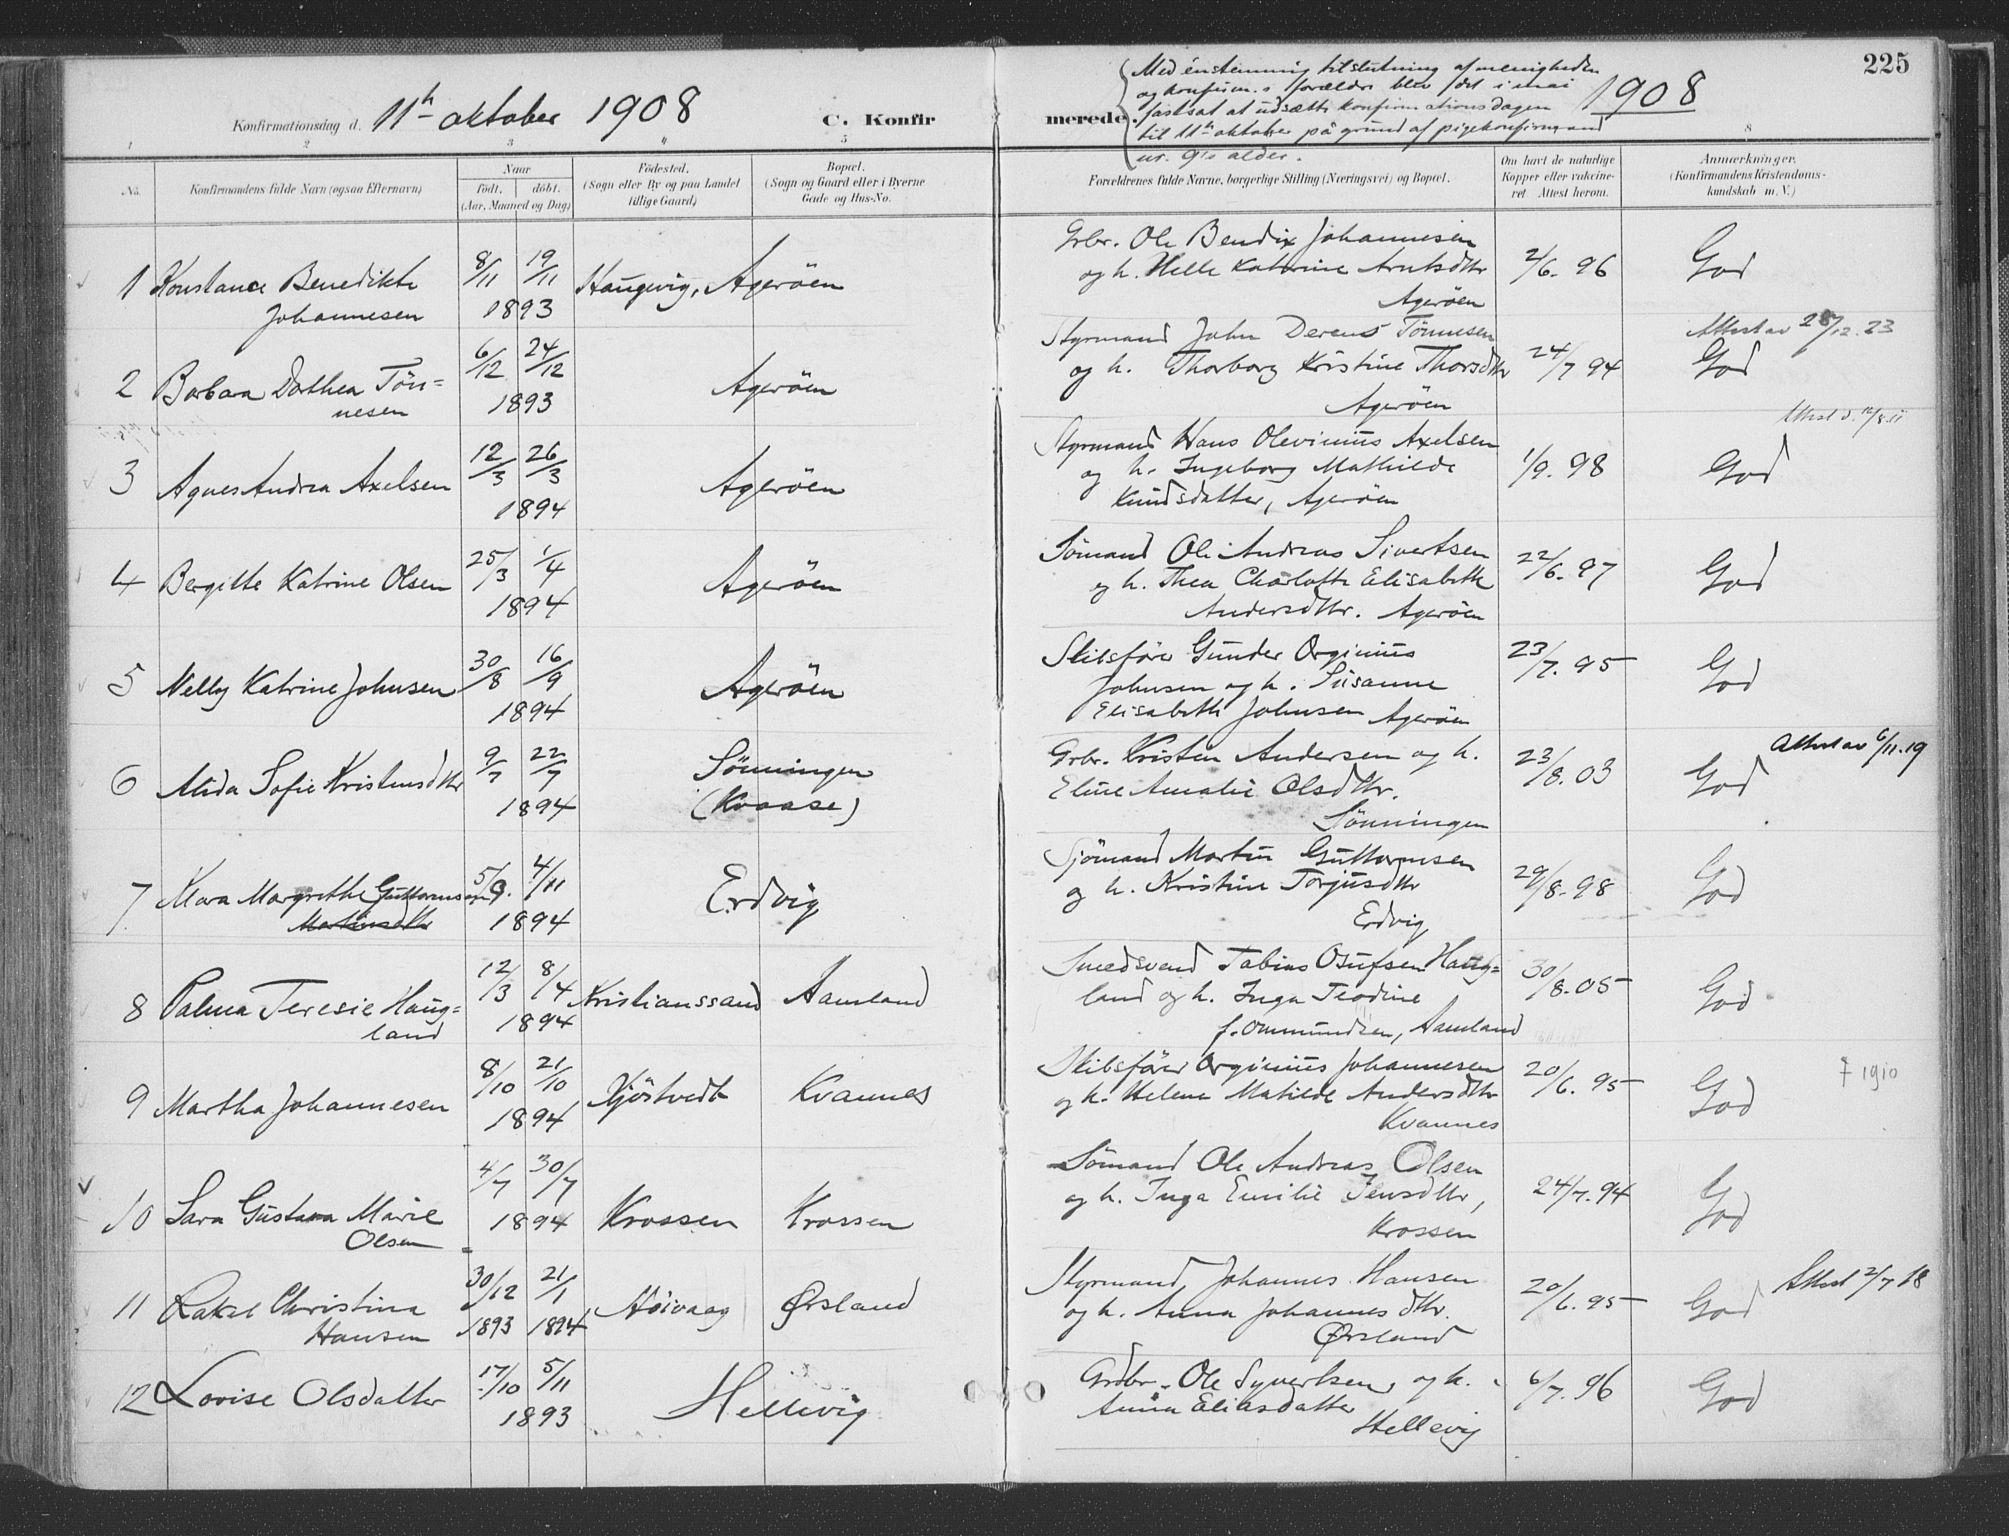 225
Konfirmationsdag d. 11th oktober 1908
C. Konfirmerede.
Med énstemmig tilslutning af menigheden
og konfirm.s forældre blev det i mai
fastsat at udsætte konfirmationsdagen
til 11th oktober på grund af pigekonfirmand
nr. 9's alder.
1908
1 2 3 4 5 8
No.
Konfirmandens fulde Navn (ogsaa Efternavn)
Naar
født. døbt.
(Aar, Maaned og Dag)
Födested.
(Sogn eller By og paa Landet
tillige Gaard)
Bopæl.
(Sogn og Gaard eller i Byerne
Gade og Hus-No.
Forældrenes fulde Navne, borgerlige Stilling (Næringsvei) og Bopæl.
Om havt de naturlige
Kopper eller vakcine-
ret Attest herom.
Anmærkninger.
(Konfirmandens Kristendoms-
kundskab m. V.)
1 Konstance Benedikte
Johannesen
8/11 19/11
1893
Haugevig, Agerøen
Grbr. Ole Bendix Johannesen
og h. Helle Katrine Arntsdtr
Agerøen
2/6. 96
God
2 Barbara Dorthea Tøn=
nesen
6/12 24/12
1893
Agerøen
Styrmand John Derens Tønnesen
og h. Thorborg Kristine Thorsdtr
Agerøen
24/7 94
Attest av 28/12.23
God
3 Agnes Andrea Axelsen
12/3 26/3
1894
Agerøen
Styrmand Hans Olevinius Axelsen
og h. Ingeborg Mathilde
Knudsdatter, Agerøen
1/9. 98
Attest d. 12/8.11
God
4 Bergitte Katrine Olsen
25/3 1/4
1894
Agerøen
Sømand Ole Andreas Sivertsen
og h. Thea Charlotte Elisabeth
Andersdtr. Agerøen
22/6. 97
God
5 Nelly Katrine Johnsen
30/8 16/9
1894
Agerøen
Skibsfører Gunder Orginius
Johnsen og h. Susanne
Elisabeth Johnsen Agerøen
23/7. 95
God
6 Alida Sofie Kristensdtr
9/7 22/7
1894
Sønningen
(Kvaase)
Grbr. Kristen Andersen og h.
Eline Amalie Olsdtr.
Sønningen
23/8. 03
Attest av 6/11.19
God
7 Klara Margrethe Guttormsen
Martinsdtr
5/9. 4/11
1894
Erdvig
Sjømand Martin Guttormsen
og h. Kristine Torjusdtr
Erdvig
29/8. 98
God
8 Palma Teresie Haug=
land
12/3 8/4
1894
Kristianssand Aamland
Smedsvend Tobias Osufsen Haug=
land og h. Inga Teodine
f. Ommundsen, Aamland
30/8. 05
God
9 Martha Johannesen
8/10 21/10
1894
Kjøstvedt Kvannes
Skibsfører Orginius Johannesen
og h. Helene Matilde Andersdtr
Kvannes
20/6. 95
God
† 1910
10 Sara Gustava Marie
Olsen
4/7 30/7
1894
Krossen Krossen
Sømand Ole Andreas Olsen
og h. Inga Emilie Jensdtr,
Krossen
24/7. 94
God
11 Rakel Christina
Hansen
30/12 21/1
1893 1894
Høivaag Ørsland
Styrmand Johannes Hansen
og h. Anna Johannesdtr.
Ørsland
20/6. 95
Attest 2/7 18
God
12 Lovise Olsdatter
17/10 5/11
1893
Hellevig
Grdbr. Ole Syvertsen, og h.
Anna Eliasdatter
Hellevig
6/7. 96
God